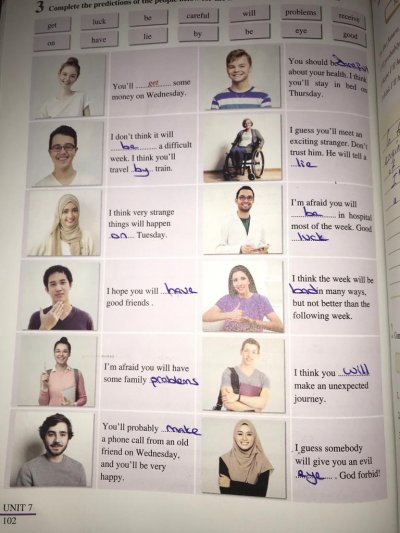 3 Complete the predictions of the people
get
luck
be
careful
will
problems
receive
on
have
lie
by
be
eye
good
You'll ...get... some
money on Wednesday.
You should be careful
about your health. I think
you'll stay in bed on
Thursday.
I don't think it will
...be... a difficult
week. I think you'll
travel ..by.. train.
I guess you'll meet an
exciting stranger. Don't
trust him. He will tell a
lie
I think very strange
things will happen
on... Tuesday.
I'm afraid you will
...be... in hospital
most of the week. Good
..luck
I hope you will ..have
good friends .
I think the week will be
bad in many ways,
but not better than the
following week.
I'm afraid you will have
some family problems
I think you ..will
make an unexpected
journey.
You'll probably ..make
a phone call from an old
friend on Wednesday,
and you'll be very
happy.
I guess somebody
will give you an evil
eye... . God forbid!
UNIT 7
102